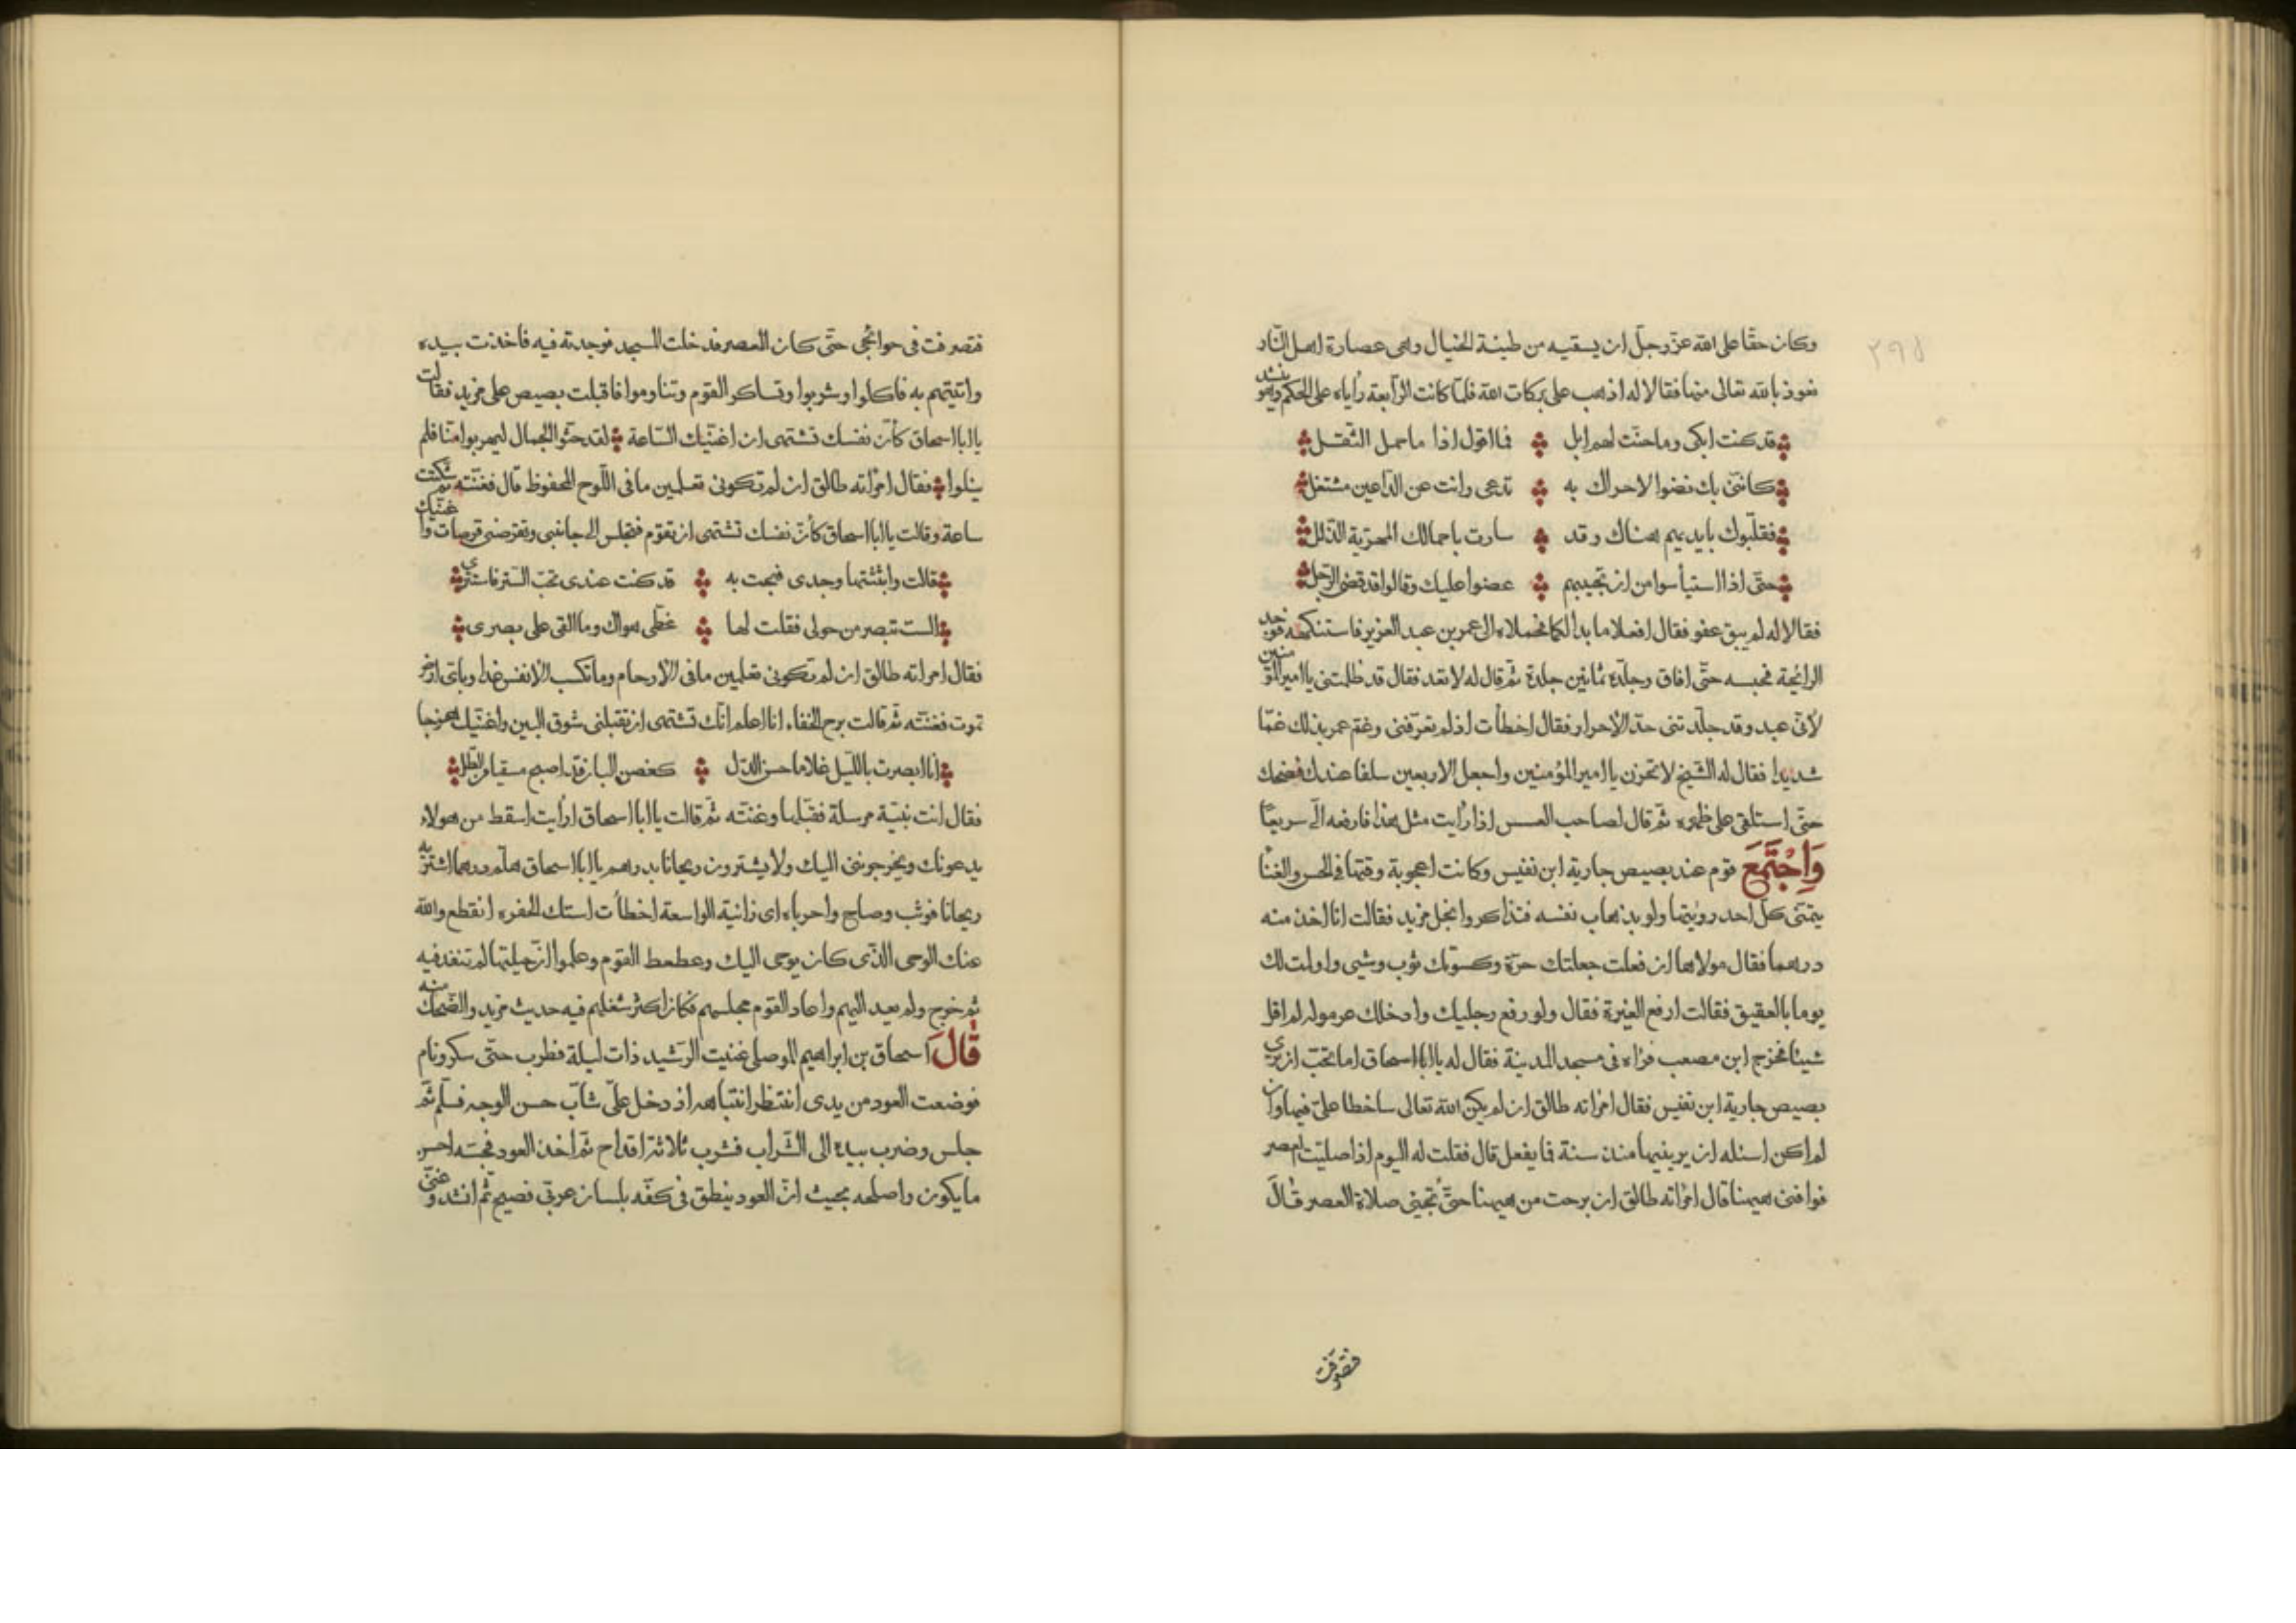 ٢٩٥
وكان حقا على الله عزّ وجلّ ان يسقيه من طينة الخبال وهى عصارة اهل النّار
نعوذ بالله تعالى منها فقالا له اذهب على بركات الله فلمّا كانت الرّابعة رأياه على الحكم وهو ينشد
قد كنت ابكى وما حنّت لهم ابل فما اقول اذا ما حمل الثّقل
كاننى بك نضوا لاحراك به تدعى وانت عن الدّاعين مشتغل
فقلّبوك بايديهم هناك وقد سارت باحمالك المهريّة الذلل
حتّى اذا استيأسوا من ان تجيبهم عضوا عليك وقالوا قد قضى الرّجل
فقالا له لم يبق عفو فقال افعلا ما بدا لكما فحملاه الى عمر بن عبد العزيز فاستنكهه فوجد
الرائحة فحبسه حتّى افاق وجلده ثمانين جلدة ثمّ قال له لا تعد فقال قد ظلمتنى يا امير المؤمنين
لأنّى عبد وقد جلدتنى حدّ الأحرار فقال اخطأت اذ لم تعرّفنى وغمّ عمر بذلك غمّا
شديدا فقال له الشّيخ لا تحزن يا امير المؤمنين واجعل الاربعين سلفا عندك فضحك
حتّى استلقى على ظهره ثمّ قال لصاحب العسس اذا رأيت مثل هذا فارفعه الىّ سريعًا
وَاجْتَمَعَ قوم عند بصيص جارية ابن نفيس وكانت اعجوبة وقتها فى الحسن والغنا
يتمنّى كلّ احد رؤيتها ولو بذهاب نفسه فتذاكروا بخل مزيد فقالت انا اخذ منه
درهما فقال مولاها ان فعلت جعلتك حرّة وكسوتك ثوب وشى واولمت لك
يوما بالعقيق فقالت ارفع الغيرة فقال ولو رفع رجليك وادخلك لم اقل
شيئا فخرج ابن مصعب فراه فى مسجد المدينة فقال له يا ابا اسحاق اما تحبّ ان ترى
بصيص جارية ابن نفيس فقال امرأته طالق ان لم يكن الله تعالى ساخطا علىّ فيها وان
لم اكن اسئله ان يرينيها منذ سنة فما يفعل قال فقلت له اليوم اذا صليت العصر
فوافنى هيهنا قال امرأته طالق ان برحت من هيهنا حتّى تجيئ صلاة العصر قال
فتصرفت
فتصرفت فى حوائجى حتّى كان العصر فدخلت المسجد فوجدته فيه فاخذت بيده
واتيتهم به فاكلوا وشربوا وتساكر القوم وتناوموا فاقبلت بصيص على مزيد فقالت
يا ابا اسحاق كأنّ نفسك تشتهى ان اغنّيك السّاعة لقد حثّوا الجمال ليهربوا منّا فلم
ينلوا فقال امرأته طالق ان لم تكونى تعلمين ما فى اللّوح المحفوظ قال فغنّته ثمّ سكتت
ساعة وقالت يا ابا اسحاق كأنّ نفسك تشتهى ان تقوم فتجلس الى جانبى وتقرصنى قرصات واغنّيك
قالت وابثثتها وجدى فبحت به قد كنت عندى تحبّ السّتر فاستتر
الست تبصر من حولى فقلت لها غطّى هواك وما القى على بصرى
فقال امرأته طالق ان لم تكونى تعلمين ما فى الأرحام وما تكسب الأنفس غدا وباىّ ارض
تموت فغنّته ثمّ قالت برح الخفاء انا اعلم انّك تشتهى ان تقبلنى شوق البين واغنّيك هزجا
انا ابصرت بالليل غلاما حسن الدلّ كغصن البان قد اصبح مسقيا من الطّل
فقال انت نبيّة مرسلة فقبّلها وغنّته ثمّ قالت يا ابا اسحاق ارأيت اسقط من هولاء
يدعونك ويخرجوننى اليك ولا يشترون ريحانا بدرهم يا ابا اسحاق هلمّ درهما اشتر به
ريحانا فوثب وصاح واحرباه اى زانية الواسعة اخطأت استك الحفره انقطع والله
عنك الوحى الّذى كان يوحى اليك وعطعط القوم وعلموا انّ حيلتها لم تنفد فيه
ثمّ خرج ولم يعد اليهم واعاد القوم مجلسهم فكان اكثر شغلهم فيه حديث مزيد والضّحك منه
قَالَ اسحاق بن ابراهيم الموصلى غنيت الرّشيد ذات ليلة فطرب حتّى سكر ونام
فوضعت العود من يدى انتظر انتباهه اذ دخل علىّ شابّ حسن الوجه فسلّم ثمّ
جلس وضرب بيده الى الشّراب فشرب ثلاثة اقداح ثمّ اخذ العود فجسّه احسن
ما يكون واصلحه بحيث انّ العود ينطق فى كفّه بلسان عربّى فصيح ثمّ انشد وغنّى